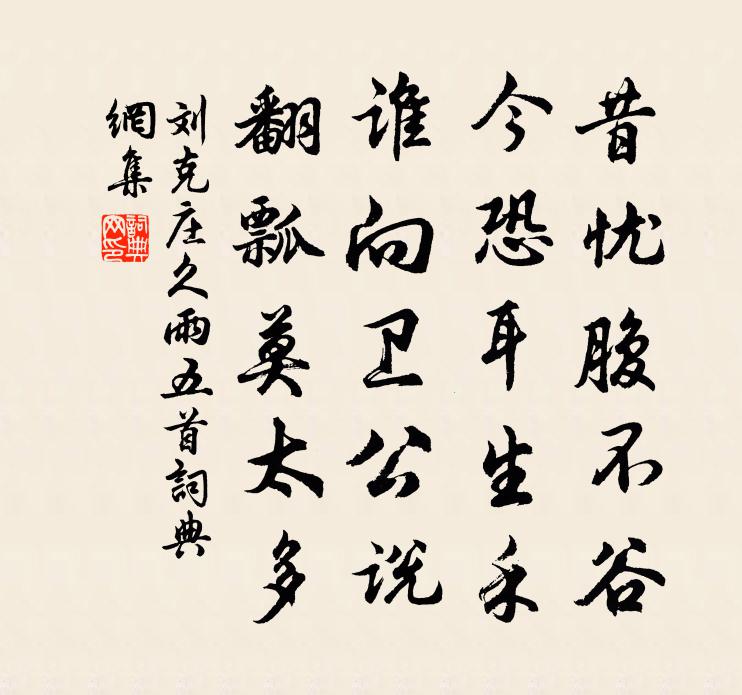 昔忧腹不谷
今恐耳生禾
谁向卫公说
翻瓢莫太多
刘克庄久雨五首詞典
網集
詞典
网印